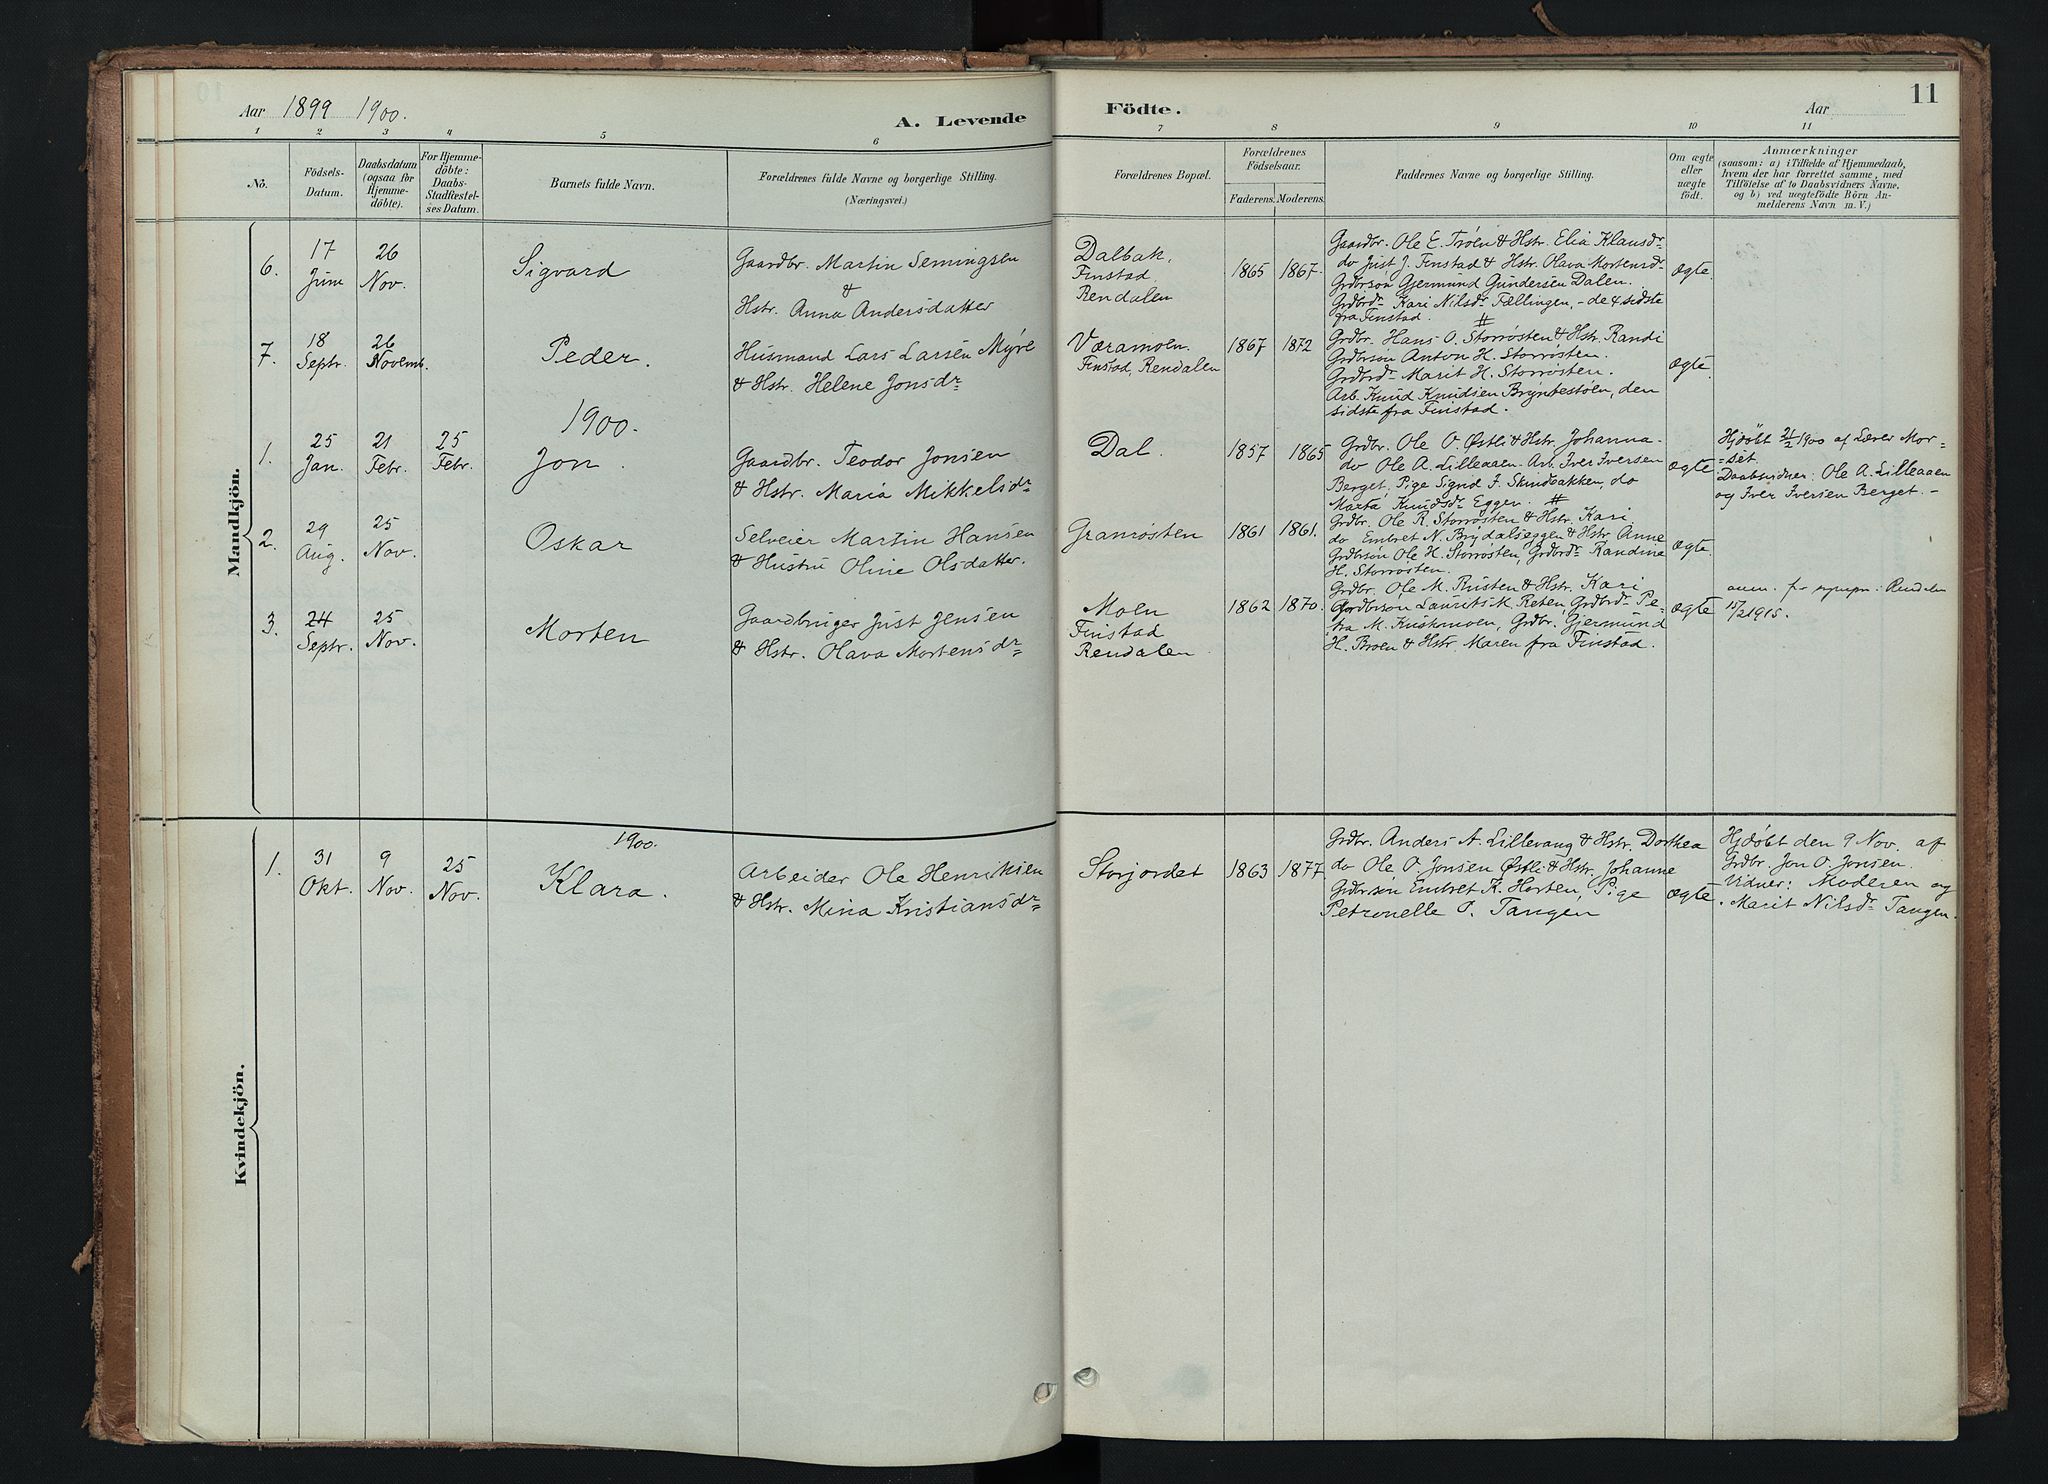 Aar 1899 1900.
A. Levende Födte.
Aar
11
1 2 3 4 5 6 7 8 9 10 11
No.
Födsels-
Datum.
Daabsdatum
(ogsaa for
Hjemme-
döbte).
For Hjemme-
döbte:
Daabs-
Stadfæstel-
ses Datum.
Barnets fulde Navn.
Forældrenes fulde Navne og borgerlige Stilling.
(Næringsvei.)
Forældrenes Bopæl.
Forældrenes
Födselsaar.
Faderens. Moderens.
Faddernes Navne og borgerlige Stilling.
Om ægte
eller
uægte
födt.
Anmærkninger
(saasom: a) i Tilfælde af Hjemmedaab,
hvem der har forrettet samme, med
Tilföielse af to Daabsvidners Navne,
og b) ved uægtefödte Börn An-
melderens Navn m. V.)
Mandkjön.
6.
17
Juni
26
Nov.
Sigvard
Gaardbr. Martin Semingsen
&
Hstr. Anna Andersdatter
Dalbak,
Finstad
Rendalen
1865 1867.
Gaardbr. Ole E. Trøen & Hstr. Elia Klausdr
do Just J. Finstad & Hstr. Olava Mortensd-
Grdbrsøn Gjermund Gundersen Dalen.
Grdbrdr Kari Nilsdr Fællingen, - de 4 sidste
fra Finstad. #
Ægte.
7.
18
Septr.
26
Novemb.
Peder.
Husmand Lars Larsen Myre
& Hstr. Helene Jonsdr
Væramoen.
Finstad, Rendalen
1867 1872
Grdbr. Hans O. Storrøsten & Hstr. Randi
Grdbrsøn Anton H. Storrøsten.
Grdbrdr Marit H. Storrøsten.
Arb. Knud Knudsen Bryntestøen, den
sidste fra Finstad.
Ægte.
1900.
1.
25
Jan.
21
Febr.
25
Febr.
Jon.
Gaardbr. Teodor Jonsen
& Hstr. Maria Mikkelsdr
Dal.
1857 1865
Grdbr. Ole O. Østli & Hstr. Johanna.
do Ole A. Lilleaaen. Arb. Iver Iversen
Berget. Pige Signe J. Skindbakken, do
Marta Knudsdr Eggen. #
Ægte
Hjdöbt 21/2 1900 af Lærer Mor-
set
Daabsvidner: Ole A. Lilleaaen
og Iver Iversen Berget. -
2.
29
Aug.
25
Nov.
Oskar
Selveier Martin Hansen
& Hustru Oline Olsdatter.
Granrøsten
1861 1861.
Grdbr. Ole R. Storrøsten & Hstr. Kari
do Embret N. Brydalseggen & Hstr Anne
Grdbrsøn Ole H. Storrøsten, Grdbrdr Randine
H. Storrøsten.
Ægte.
3.
24
Septr.
25
Nov.
Morten
Gaardbruger Just Jensen
& Hstr. Olava Mortensdr
Moen
Finstad
Rendalen
1862 1870.
Grdbr. Ole M. Risten & Hstr. Kari
Grdbrsøn Laurits K. Reten, Grdbrdr Pe-
tra M. Kuskmoen, Grdbr. Gjermund
H. Broen & Hstr. Maren fra Finstad.
Ægte
Rendalen
15/2 1915.
Kvindekjön.
1900.
1.
31
Okt.
9
Nov.
25
Nov.
Klara.
Arbeider Ole Henriksen
& Hstr. Mina Kristiansdr
Storjordet
1863 1877
Grdbr. Anders A. Lillevang & Hstr. Dorthea
do Ole O. Jonsen Østli & Hstr. Johanne
Grdbrsøn Embret K. Horten, Pige
Petronelle P. Tangen
Ægte
Hjdöbt den 9 Nov. af
Grdbr. Jon O. Jonsen.
Vidner: Moderen og
Marit Nilsdr Tangen.